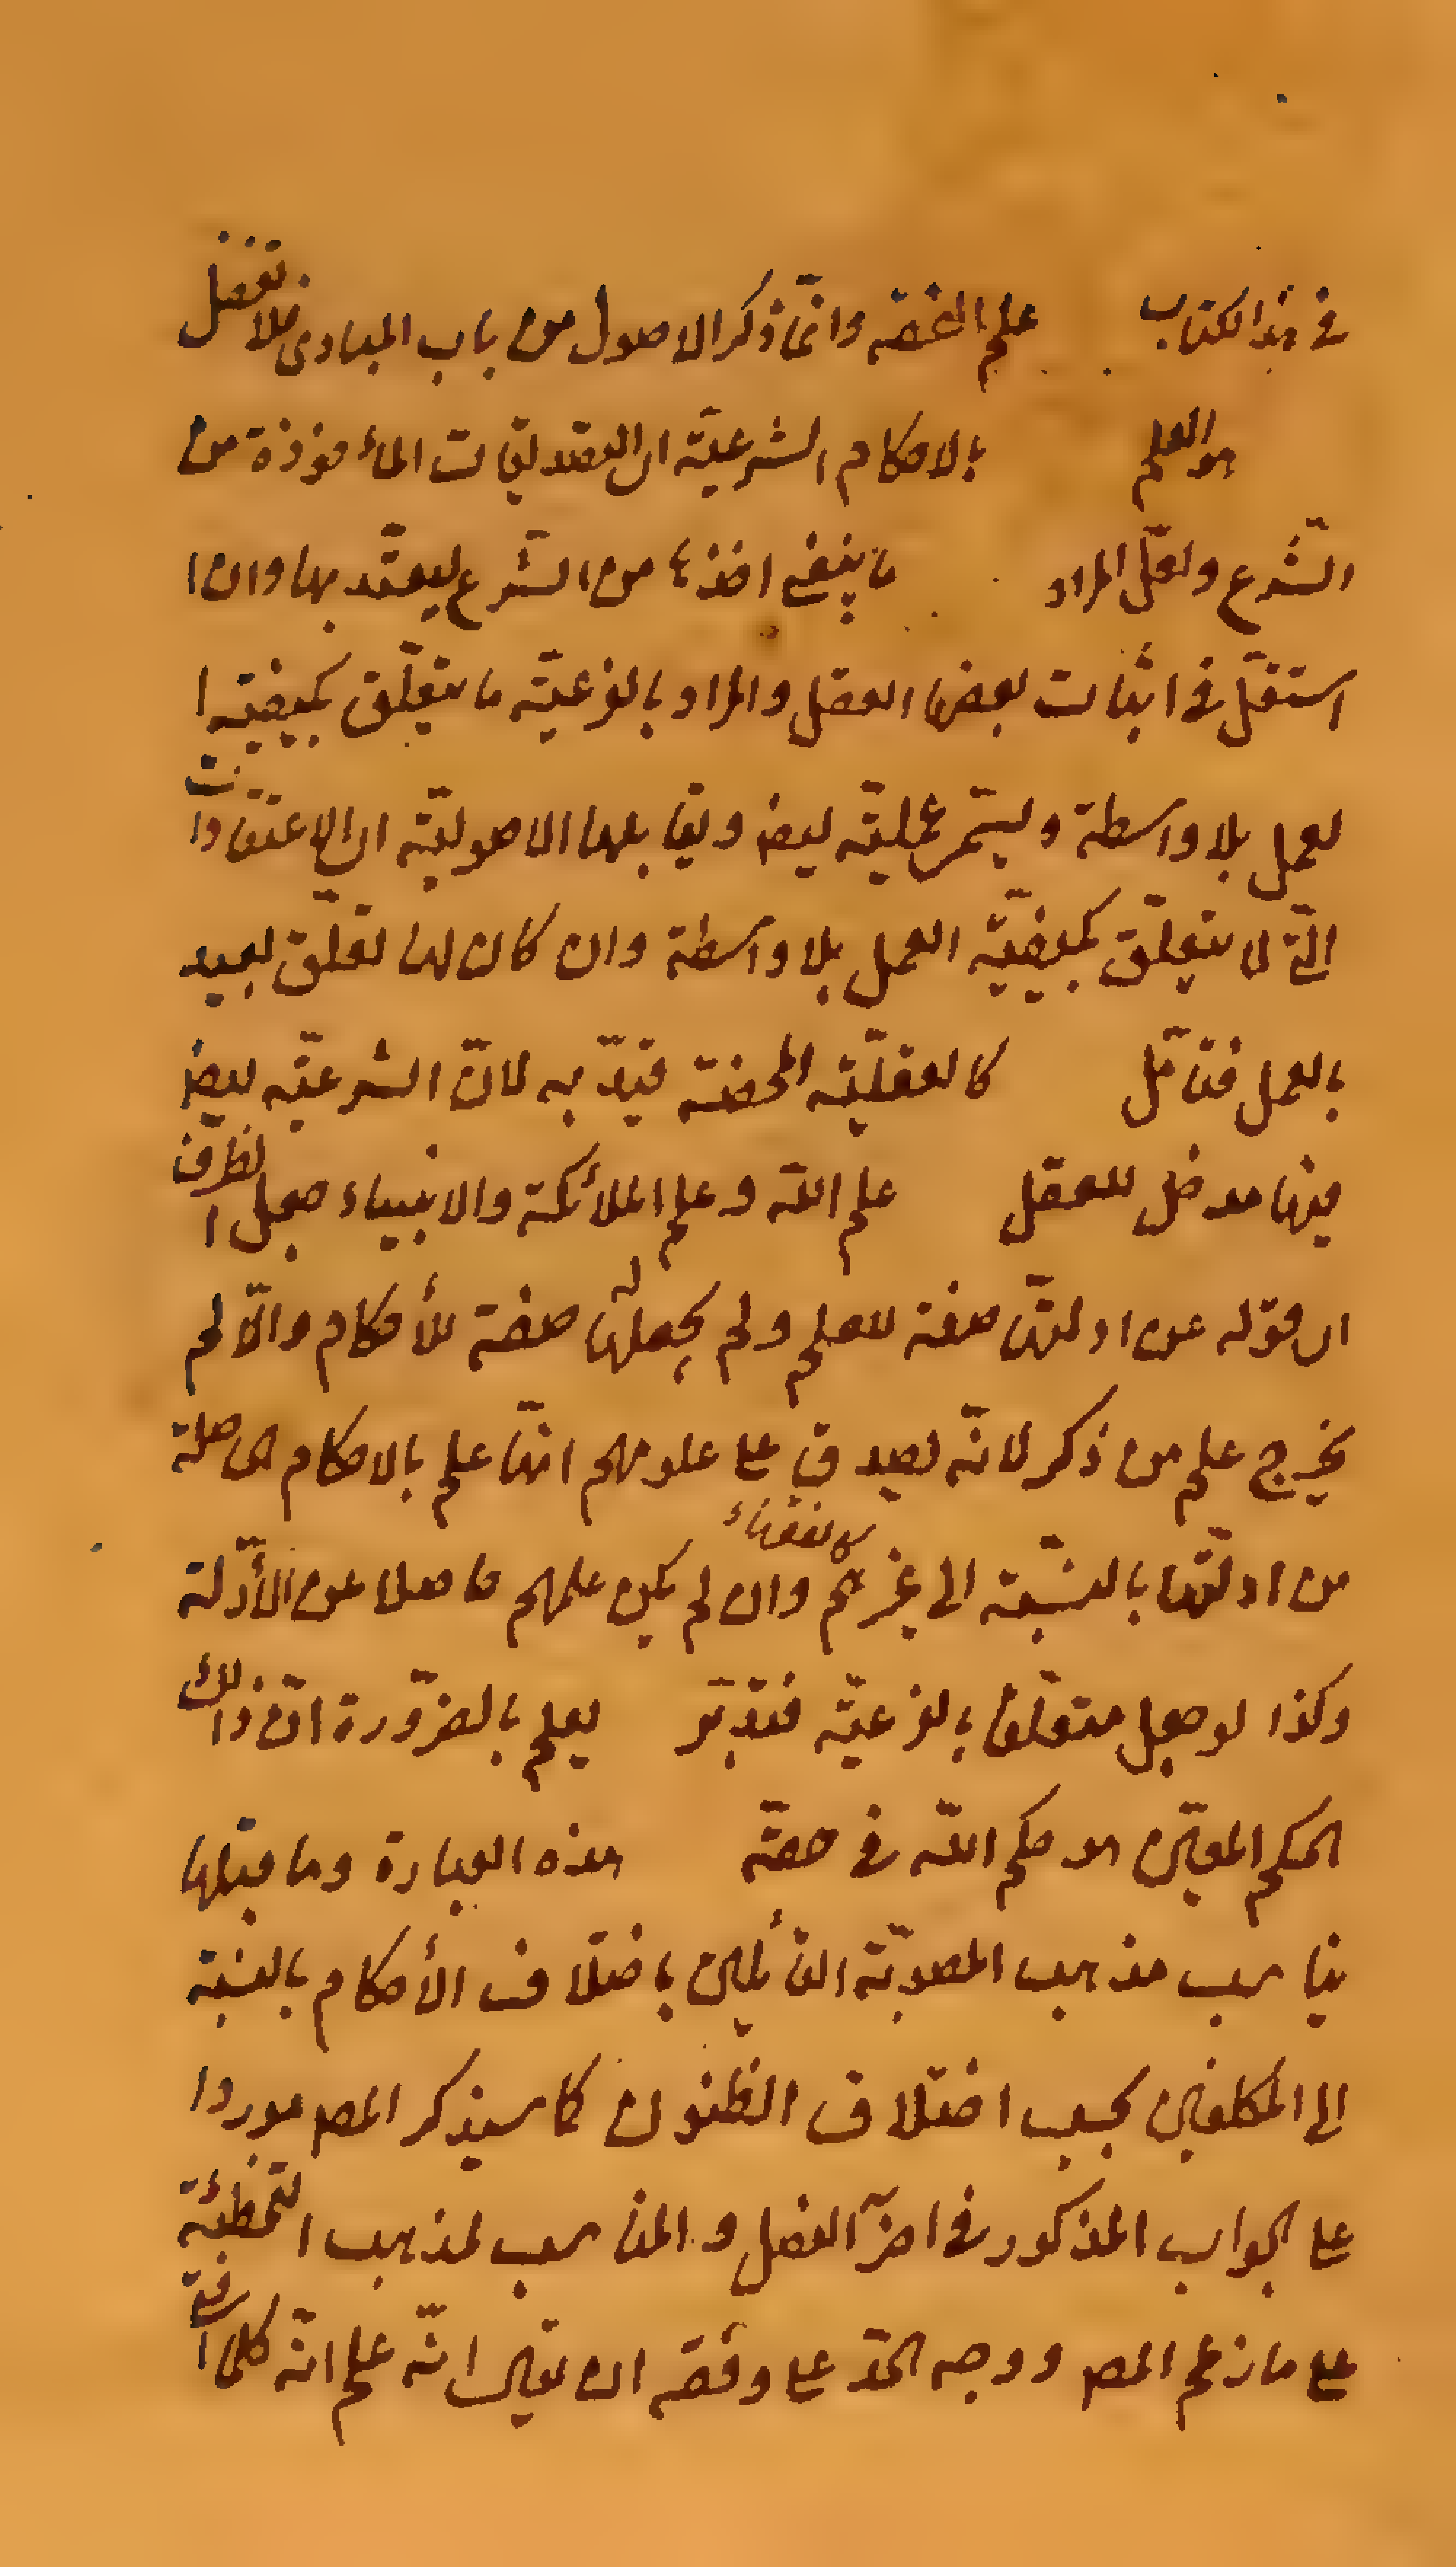 في هذا الكتاب علم الفقه وانّما ذكر الاصول من باب المبادى فلا تغفل
هو العلم بالاحكام الشرعيّة اى التصديقات المأخوذة من
الشّرع ولعلّ المراد ما ينبغي اخذها من الشّرع ليعتدّ بها وان ا
استقلّ في اثبات بعضها العقل والمراد بالفرعيّة ما يتعلّق بكيفيّة ا
لعمل بلا واسطة ويسمّى عمليّة ايضا ويقابلها الاصوليّة اى الاعتقادات
الّتي لا يتعلّق بكيفيّة العمل بلا واسطة وان كان لها تعلّق بعيد
بالعمل فتأمّل كالعقليّة المحضة قيّد به لانّ الشرعيّة ايضا
فيها مدخل للعقل علم اللّه وعلم الملائكة والانبياء جعل الظرف
اى قوله عن ادلّتها صفة للعلم ولم يجعله صفة للأحكام والّا لم
يخرج علم من ذكر لانّه يصدق على علومهم انّها علم بالاحكام الحاصلة
من ادلّتها بالنسّبة الى غيرهم كالفقهاء وان لم يكن علمهم حاصلا عن الأدّلة
وكذا لو جعل متعلّقا بالفرعيّة فتدبّر يعلم بالضّرورة انّ ذالك
الحكم المعيّن هو حكم اللّه في حقّه هذه العبارة وما قبلها
يناسب مذهب المصوبّة القائلين باختلاف الأحكام بالنسبة
الى المكلفين بحسب اختلاف الظنون كما سيذكر المص موردا
على الجواب المذكور في اخر الفصل والمناسب لمذهب التخطئة
على ما زعم المص ووجه الحدّ على وفقه ان يقال انّه علم انّه كلّما